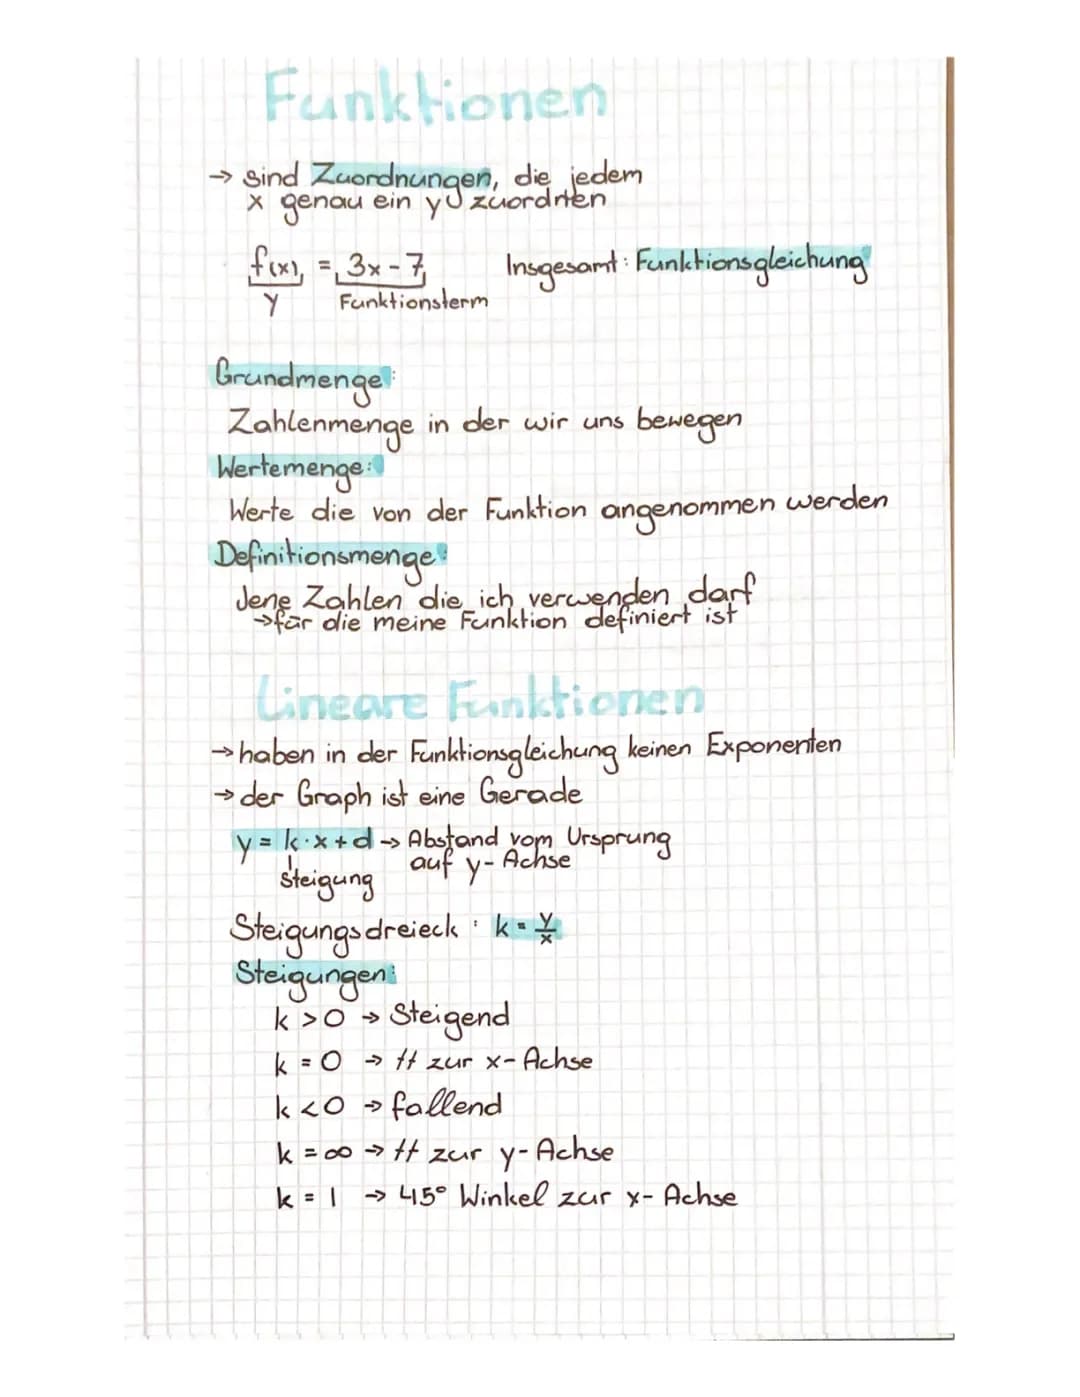 Funktionen
→ sind Zuordnungen, die jedem
x genau ein y zuordnen
f(x) = 3x - 7 Insgesamt: Funktionsgleichung
y Funktionsterm
Grundmenge:
Zahlenmenge in der wir uns bewegen
Wertemenge:
Werte die von der Funktion angenommen werden
Definitionsmenge:
Jene Zahlen die ich verwenden darf
→für die meine Funktion definiert ist
Lineare Funktionen
→ haben in der Funktionsgleichung keinen Exponenten
→ der Graph ist eine Gerade
y = k · x + d → Abstand vom Ursprung
auf y-Achse
Steigung
Steigungsdreieck: k = y/x
Steigungen:
k > 0 → Steigend
k = 0 → // zur x-Achse
k < 0 → fallend
k = ∞ → // zur y-Achse
k = 1 → 45° Winkel zur x-Achse